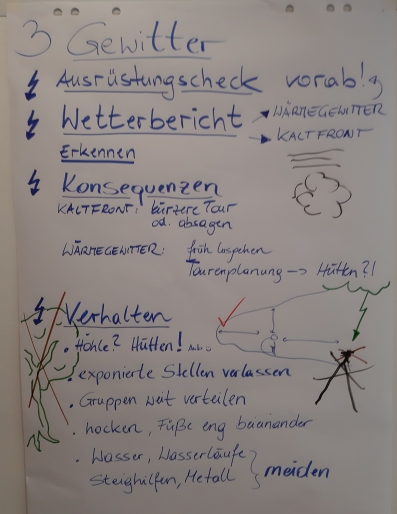 3 Gewitter
Ausrüstungscheck vorab!
Wetterbericht → WÄRMEGEWITTER
→ KALTFRONT
Erkennen
Konsequenzen
KALTFRONT: kürzere Tour
od. absagen
WÄRMEGEWITTER: früh losgehen
Tourenplanung → Hütten?!
Verhalten
• Höhle? Hütten!
• exponierte Stellen verlassen
• Gruppen weit verteilen
• hocken, Füße eng beieinander
• Wasser, Wasserläufe
Steighilfen, Metall } meiden